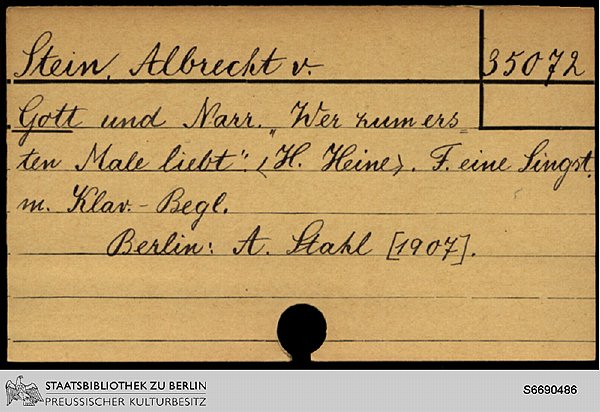 Stein, Albrecht v.
35072
Gott und Narr. „Wer zum ers=
ten Male liebt“. <H. Heine>. F. eine Singst.
m. Klav.-Begl.
Berlin: A. Stahl [1907].
STAATSBIBLIOTHEK ZU BERLIN
PREUSSISCHER KULTURBESITZ
S6690486